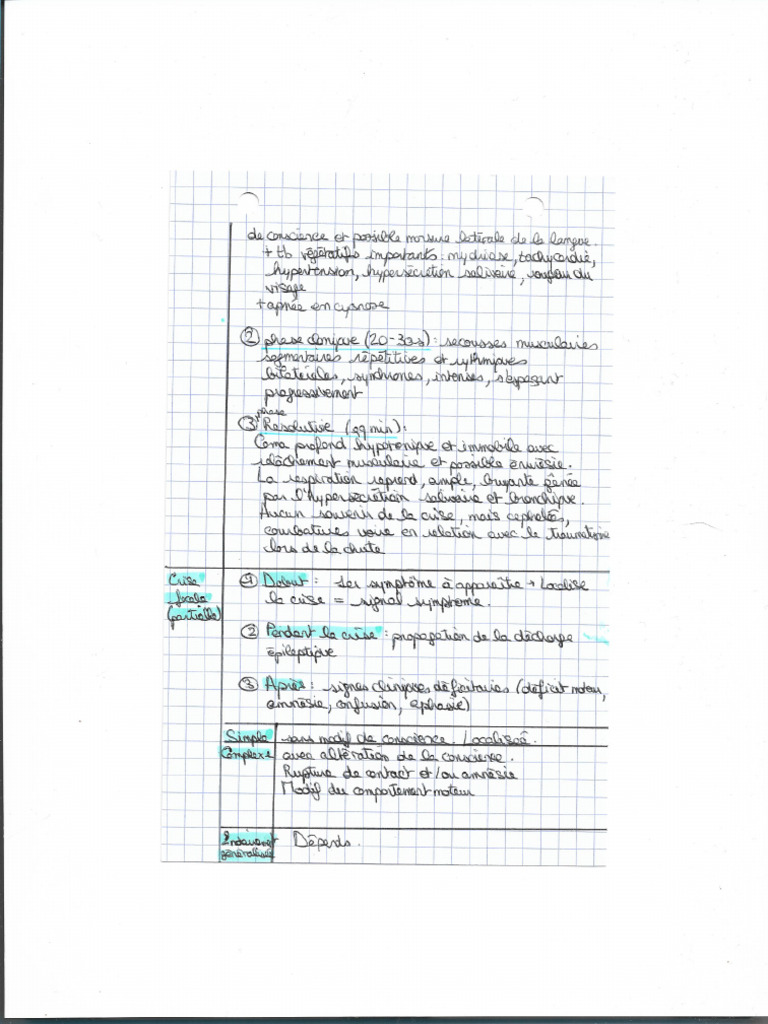 de conscience et possible morsure latérale de la langue.
+ tb végétatifs importants : mydriase, tachycardie,
hypertension, hypersécrétion salivaire, rougeur du
visage
+ apnée en cyanose
② phase clonique (20-30s) : secousses musculaires
segmentaires répétitives et rythmiques
bilatérales, synchrones, intenses, s'espaçant
progressivement
phase
③ Résolutive (qq min) :
Coma profond hypotonique et immobile avec
relâchement musculaire et possible énurésie.
La respiration reprend, ample, bruyante gênée
par l'hypersécrétion salivaire et bronchique.
Aucun souvenir de la crise, mais céphalées,
courbatures voire en relation avec le traumatisme
lors de la chute
Crise
focale
(partielle)
① Début : 1er symptôme à apparaître → Localise
la crise = signal symptôme.
② Pendant la crise : propagation de la décharge
épileptique
③ Après : signes cliniques déficitaires (déficit moteur,
amnésie, confusion, aphasie)
Simple sans modif de conscience. / Localisée.
Complexe avec altération de la conscience.
Rupture de contact et/ou amnésie
Modif du comportement moteur
généralisée Dépends.